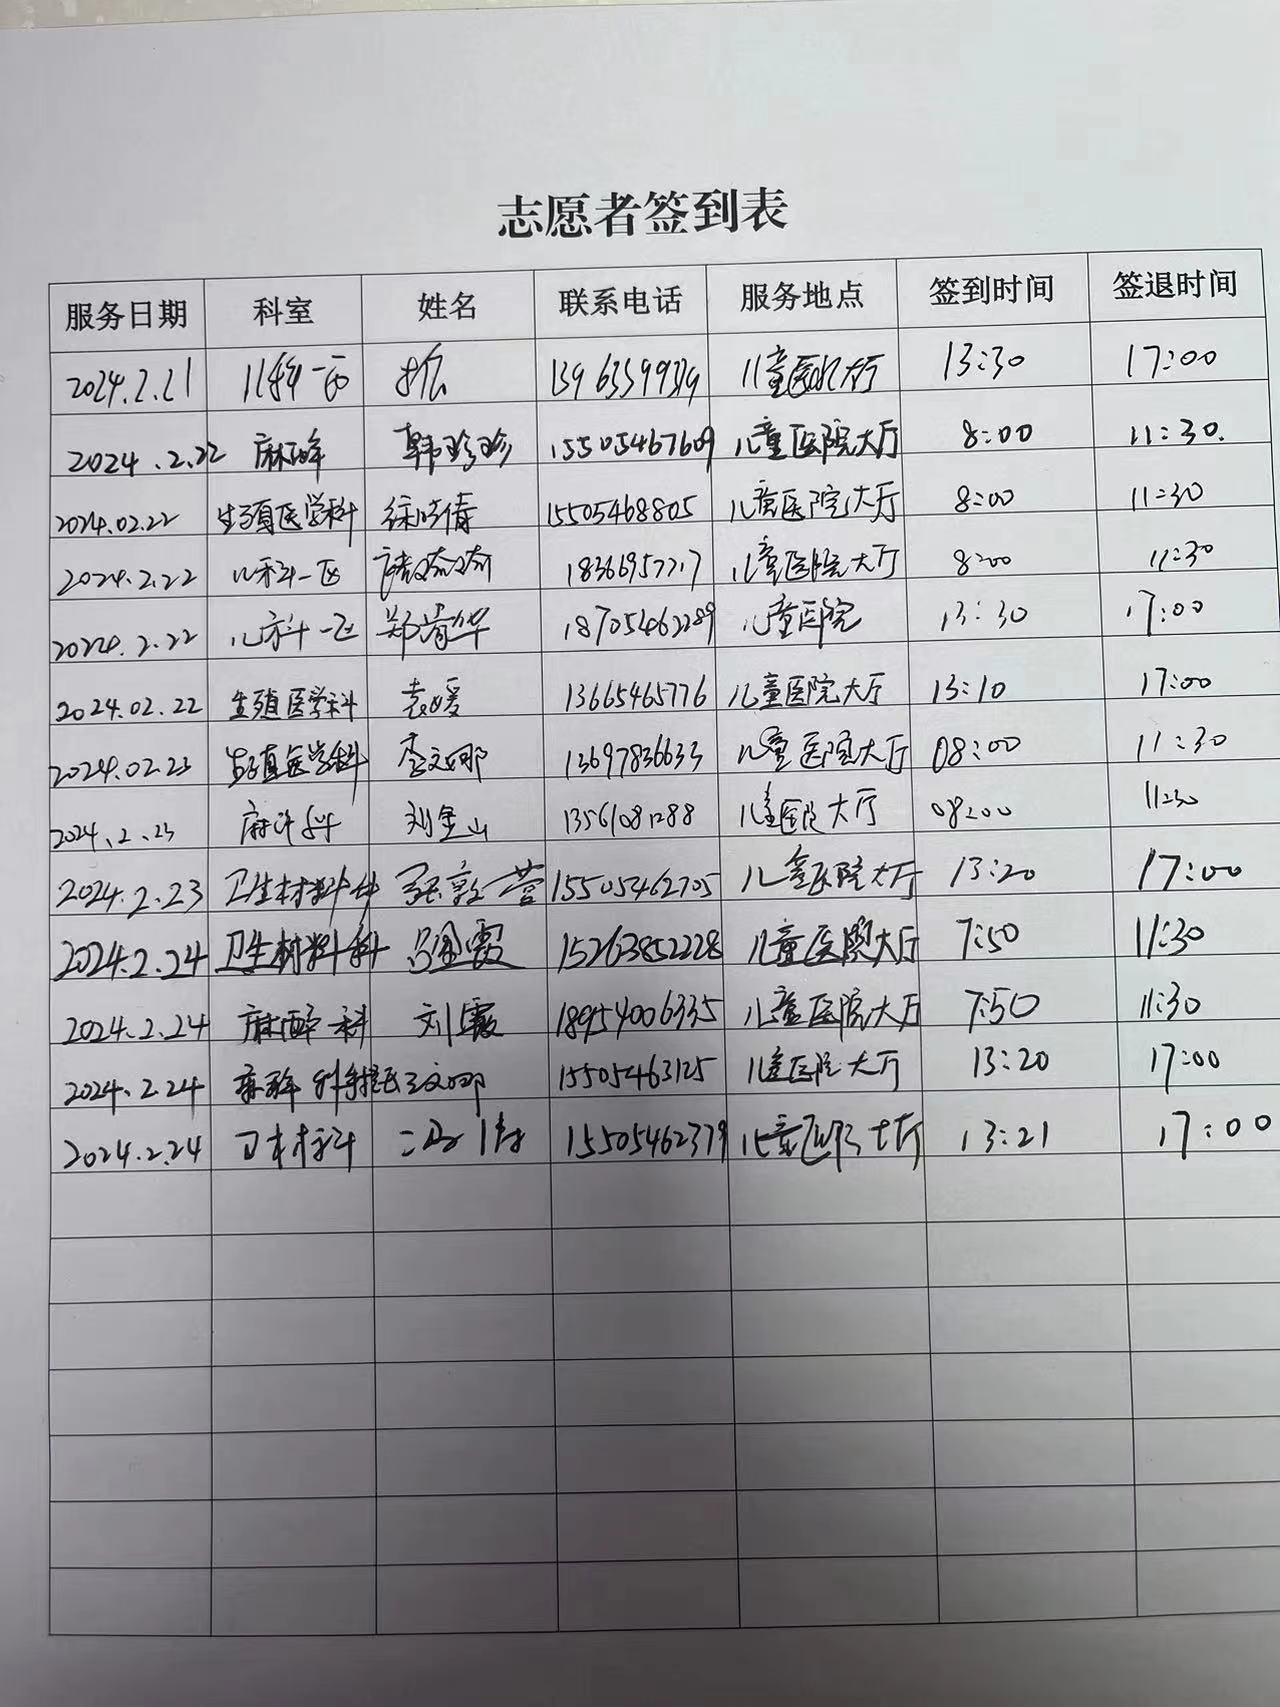 志愿者签到表
服务日期 科室 姓名 联系电话 服务地点 签到时间 签退时间
2024.2.21 儿科一 儿童医院大厅 13:30 17:00
2024.2.22 麻醉 韩珍珍 15505467609 儿童医院大厅 8:00 11:30.
2024.02.22 生殖医学科 徐晓倩 15505468805 儿童医院大厅 8:00 11:30
2024.2.22 儿科一区 儿童医院大厅 8:00 11:30
2024.2.22 儿科一区 郑 华 18705462289 儿童医院 13:30 17:00
2024.02.22 生殖医学科 袁媛 13665465776 儿童医院大厅 13:10 17:00
2024.02.23 生殖医学科 李文娜 13697836633 儿童医院大厅 08:00 11:30
2024.2.23 麻醉科 刘金山 13561081288 儿童医院大厅 08:00 11:30
2024.2.23 卫生材料科 张敦营 15505462705 儿童医院大厅 13:20 17:00
2024.2.24 卫生材料科 霞 15263852228 儿童医院大厅 7:50 11:30
2024.2.24 麻醉科 刘霞 18954006335 儿童医院大厅 7:50 11:30
2024.2.24 麻醉科 王文娜 15505463125 儿童医院大厅 13:20 17:00
2024.2.24 卫材科 15505462379 儿童医院大厅 13:21 17:00